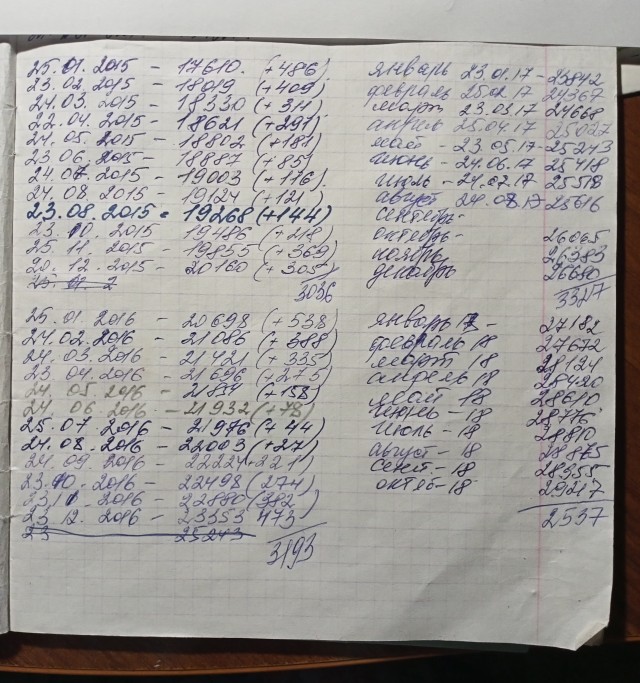 25.01.2015 - 17610. (+486)
23.02.2015 - 18019 (+409)
24.03.2015 - 18330 (+311)
22.04.2015 - 18621 (+291)
24.05.2015 - 18802 (+181)
23.06.2015 - 18887 (+85)
24.07.2015 - 19003 (+116)
24.08.2015 - 19124 (+121)
23.08.2015 - 19268 (+144)
23.10.2015 19486 (+218)
25.11.2015 - 19855 (+369)
20.12.2015 - 20160 (+305)
3036
25.01.2016 - 20698 (+538)
24.02.2016 - 21086 (+388)
24.03.2016 - 21421 (+335)
23.04.2016 - 21696 (+275)
24.05.2016 - 21854 (+158)
24.06.2016 - 21932 (+78)
25.07.2016 - 21976 (+44)
24.08.2016 - 22003 (+27)
24.09.2016 - 22224 +221
23.10.2016 - 22498 (274)
23.11.2016 - 22880 (382)
23.12.2016 - 23353 473
23 25243
3193
январь 23.01.17 - 23842
февраль 25.02.17 24367
март 23.03.17 24668
апрель 25.04.17 25027
май - 23.05.17 - 25243
июнь - 24.06.17 25418
июль - 24.07.17 25518
август 24.08.17 25616
сентябрь -
октябрь - 26065
ноябрь 26383
декабрь 26680
3327
январь 17 - 27182
февраль 18 27672
март 18 28124
апрель 18 28420
май 18 28610
июнь - 18 28776
июль - 18 28810
август - 18 28875
сент - 18 28955
октяб - 18 29217
2537